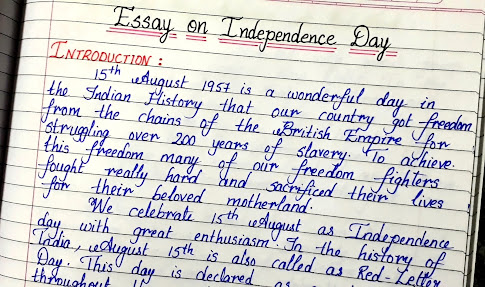 Essay on Independence Day
INTRODUCTION :
15th August 1957 is a wonderful day in
the Indian History that our country got freedom
from the chains of the British Empire for
struggling over 200 years of slavery. To achieve
this freedom many of our freedom fighters
fought really hard and sacrificed their lives
for their beloved motherland.
We celebrate 15th August as Independence
day with great enthusiasm. In the history of
India, August 15th is also called as Red-Letter
Day. This day is declared as
throughout